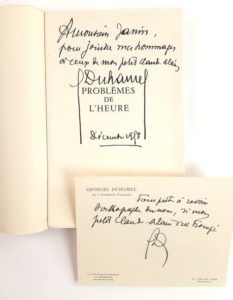 A monsieur Janin,
pour joindre mes hommages
à ceux de mon petit Claude Alain
G Duhamel
PROBLÈMES
DE
L'HEURE
Décembre 1958
GEORGES DUHAMEL
de l'Académie française
Tout prêt à revoir
l'orthographe du nom, si mon
petit Claude-Alain s'est trompé
GD